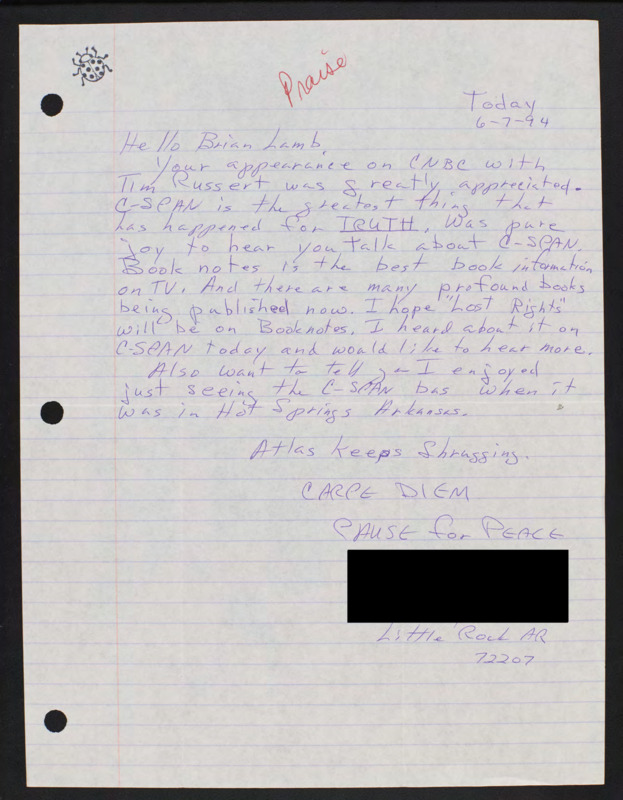 Praise
Today
6-7-94
Hello Brian Lamb,
Your appearance on CNBC with
Tim Russert was greatly appreciated.
C-SPAN is the greatest thing that
has happened for TRUTH. Was pure
joy to hear you talk about C-SPAN.
Book notes is the best book infomation
on TV. And there are many profound books
being published now. I hope "Lost Rights"
will be on Booknotes. I heard about it on
C-SPAN today and would like to hear more.
Also want to tell I enjoyed
just seeing the C-SPAN bus when it
was in Hot Springs Arkansas.
Atlas keeps Shrugging.
CARPE DIEM
PAUSE for PEACE
Little Rock AR
72207